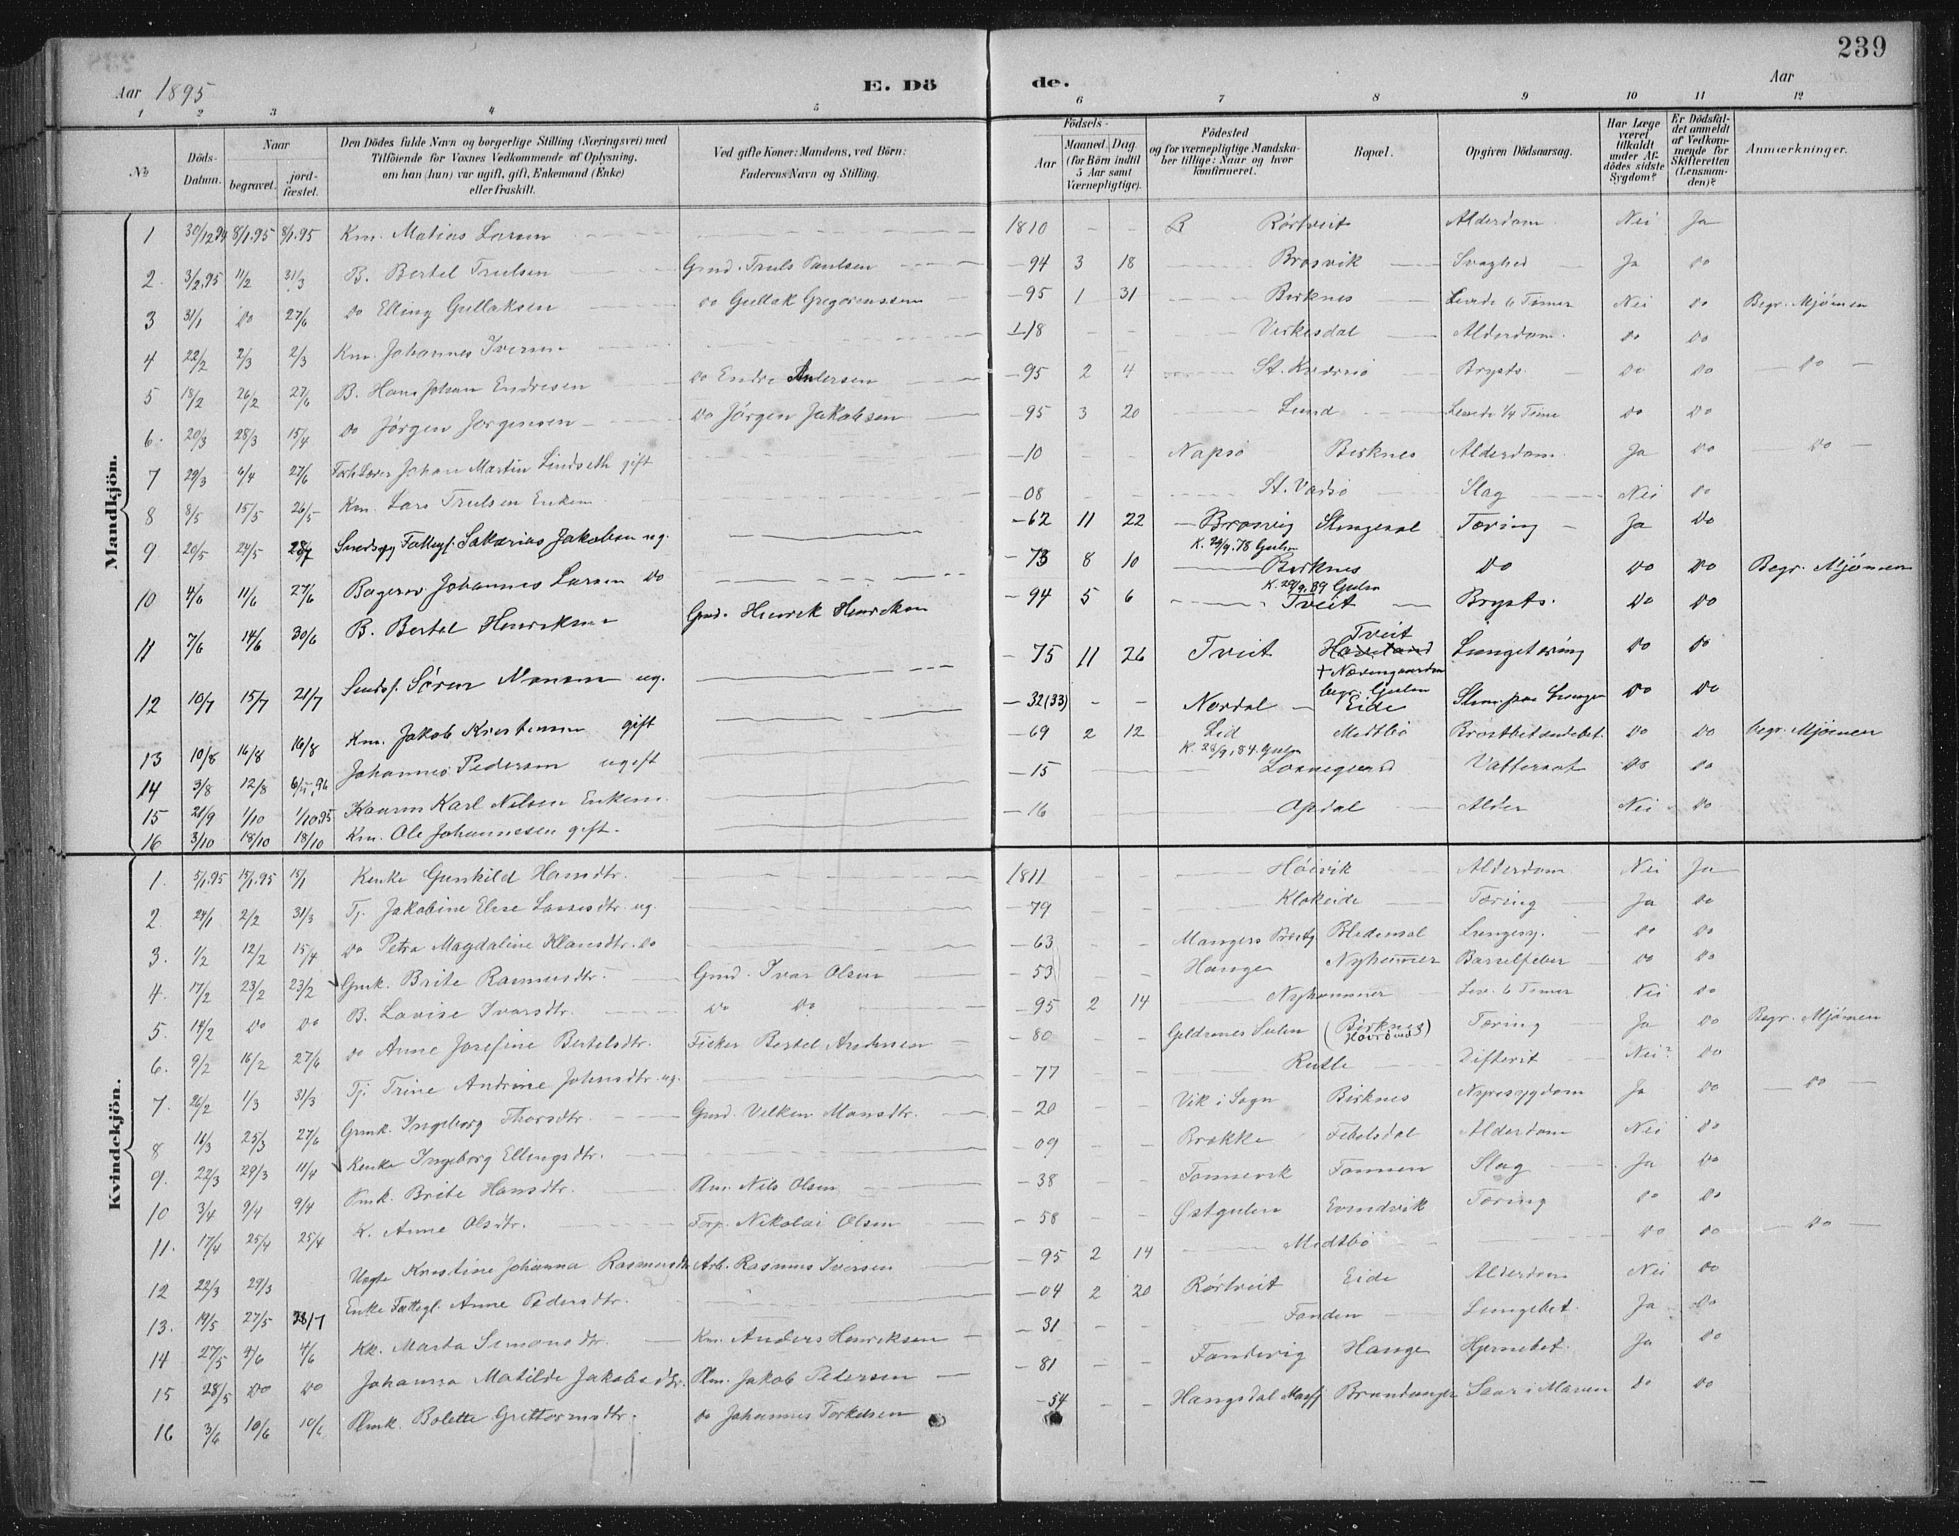 239
Aar 1895 E. Dö de. Aar
1 2 3 4 5 6 7 8 9 10 11 12
No Döds-Datum. Naar begravet. jordfæstet. Den Dödes fulde Navn og borgerlige Stilling (Næringsvei) med Tilföiende for Voxnes Vedkommende af Oplysning, om han (hun) var ugift, gift, Enkemand (Enke) eller fraskilt. Ved gifte Koner: Mandens, ved Börn: Faderens Navn og Stilling. Födsels- Aar Maaned. Dag. (for Börn indtil 5 Aar samt Værnepligtige). Födested og for værnepligtige Mandskaber tillige: Naar og hvor konfirmeret. Bopæl. Opgiven Dödsaarsag. Har Læge været tilkaldt under Afdödes sidste Sygdom? Er Dödsfaldet anmeldt af Vedkommende for Skifteretten (Lensmanden)? Anmærkninger.
Mandkjön.
1 30/12 94 8/1.95 8/1.95 Km. Matias Larsen 1810 Rörtveit Alderdom Nei Ja
2. 3/2.95 11/2 31/3 B. Bertel Trulsen Gmd. Truls Paulsen -94 3 18 Brosvik Svaghed Ja do
3 31/1 do 27/6 do Elling Gullaksen do Gullak Gregoriussen -95 1 31 Birknes Levede 6 Timer Nei do Begr. Mjömen
4 22/2 2/3 2/3 Km. Johannes Iversen -18 Virkesdal Alderdom do do
5 18/2 26/2 27/6 B. Hans Johan Endresen do Endre Andersen -95 2 4 St. Kversö Brysts. do do do
6. 20/3 28/3 15/4 do Jörgen Jørgensen do Jörgen Jakobsen -95 3 20 Lund Levede 1/4 Time do do
7 29/3 6/4 27/6 Johan Martin Lindseth gift -10 Napsö Birknes Alderdom Ja do do
8 8/5 15/5 26/5 Km. Lars Trulsen Enkem -08 St. Vadsö Slag Nei do
9 20/5 24/5 28/7 Fattigl. Sakarias Jakobsen ug. -62 11 22 Brosvig Stengesol Tæring Ja do
K. 29/9.78 Gulen
10 4/6 11/6 27/6 Johannes Larsen do -73 8 10 Birknes do do do Begr. Mjömen
K. 29/9.89 Gulen
11 7/6 14/6 30/6 B. Bertel Henriksen Gmd. Henrik Henriksen -94 5 6 Tveit Brysts. do do
12 10/7 15/7 21/7 Sören Monsen ug. -75 11 26 Tveit Tveit Lungetæring do do
begr. Gulen
13 10/8 16/8 16/8 Km. Jakob Kristensen gift -32(33) Nordal Eide do do
14 3/8 12/8 Johannes Pedersen ugift -69 2 12 Lid Midtbö Brystbetændelse do do begr. Mjömen
K. 28/9.84. Gulen
15 21/9 1/10 1/10 95 Karl Nilsen Enkem. -15 Vattersot do do
16 3/10 18/10 18/10 Km. Ole Johannesen gift. -16 Opdal Alder Nei do
Kvindekjön.
1. 5/1.95 15/1.95 15/1 Kenke Gunhild Hansdtr. 1811 Höivik Alderdom Nei Ja
2. 24/1 2/2 31/3 Tj. Jakobine Elise Lassesdtr ug. -79 Klakeide Tæring Ja do
3. 1/2 12/2 15/4 do Petra Magdaline Klausdtr. do -63 Mangers Præstg Lungesy. do do
4. 17/2 23/2 23/2 Gmk. Brite Rasmusdtr. Gmd. Ivar Olsen -53 Hauge Nyhammer Barselfeber do do
5. 14/2 do do B. Lovise Ivarsdtr. do do -95 2 14 Nyhammer Lev. 6 Timer Nei do
6. 9/2 16/2 27/6 do Anne Josefine Bertelsdtr. Fisker Bertel Andersen -80 (Birknes) Tæring Ja do Begr. Mjömen
7. 26/2 1/3 31/3 Tj. Trine Andrine Johnsdtr ug. -77 Rutle Difterit Nei? do
8 16/3 25/3 27/6 Gmk. Ingeborg Thorsdtr. Gmd. Villken Monsdtr. -20 Vik i Sogn Birknes Nyresygdom Ja do do
9. 22/3 29/3 11/4 Kenke Ingeborg Ellingsdtr. -09 Brække Alderdom Nei do
10 3/4 9/4 9/4 Brite Hansdtr. Nils Olsen -38 Tonnevik Tonnen Slag Ja do
11. 17/4 25/4 25/4 K. Anne Olsdtr. Nikolai Olsen -58 Østgulen Evindvik Tæring do do
12 22/3 29/3 Kristine Johanna Rasmusdtr Arb. Rasmus Iversen -95 2 14 Midtbö do do do
13. 19/5 27/5 28/7 Enke Fattigl. Anne Pedersdtr. -04 2 20 Rörtveit Eide Alderdom Nei do
14 27/5 4/6 4/6 Kk. Marta Simonsdtr. Km. Anders Henriksen -31 Tonden Lungebet. Ja do
15 28/5 do do Johanna Matilde Jakobsdtr. Plm. Jakob Pedersen -81 Tandevig Hauge Hjernebet. Ja do
16 3/6 10/6 10/6 Plmk. Bolette Guttormsdtr. do Johannes Torkelsen -54 Brandanger Saar i Maven do do